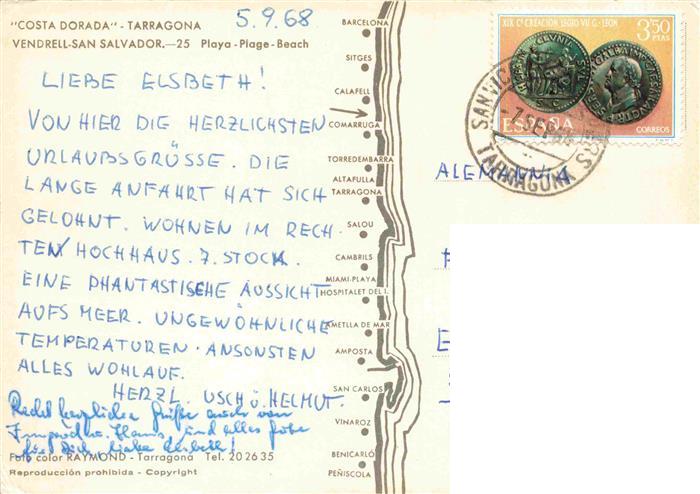 "COSTA DORADA" - TARRAGONA
VENDRELL-SAN SALVADOR.—25 Playa - Plage - Beach
5.9.68
LIEBE ELSBETH!
VON HIER DIE HERZLICHSTEN
URLAUBSGRÜSSE. DIE
LANGE ANFAHRT HAT SICH
GELOHNT. WOHNEN IM RECH-
TEN HOCHHAUS. 7. STOCK.
EINE PHANTASTISCHE AUSSICHT
AUFS MEER. UNGEWÖHNLICHE
TEMPERATUREN. ANSONSTEN
ALLES WOHLAUF.
HERZL. USCH U. HELMUT.
Recht herzliche Grüße auch von
Hans und alles Gute
für Dich, liebe Elsbeth!
Foto color RAYMOND - Tarragona Tel. 20 26 35
Reproducción prohibida - Copyright
BARCELONA
SITGES
CALAFELL
COMARRUGA
TORREDEMBARRA
ALTAFULLA
TARRAGONA
SALOU
CAMBRILS
MIAMI-PLAYA
HOSPITALET DEL I.
AMETLLA DE MAR
AMPOSTA
SAN CARLOS
VINAROZ
BENICARLÓ
PEÑISCOLA
XIX C. CREACION LEGIO VII G. - LEON
3'50
PTAS
ESPAÑA
CORREOS
SAN VICE
SEP
TARRAGONA
ALEMANNIA
E